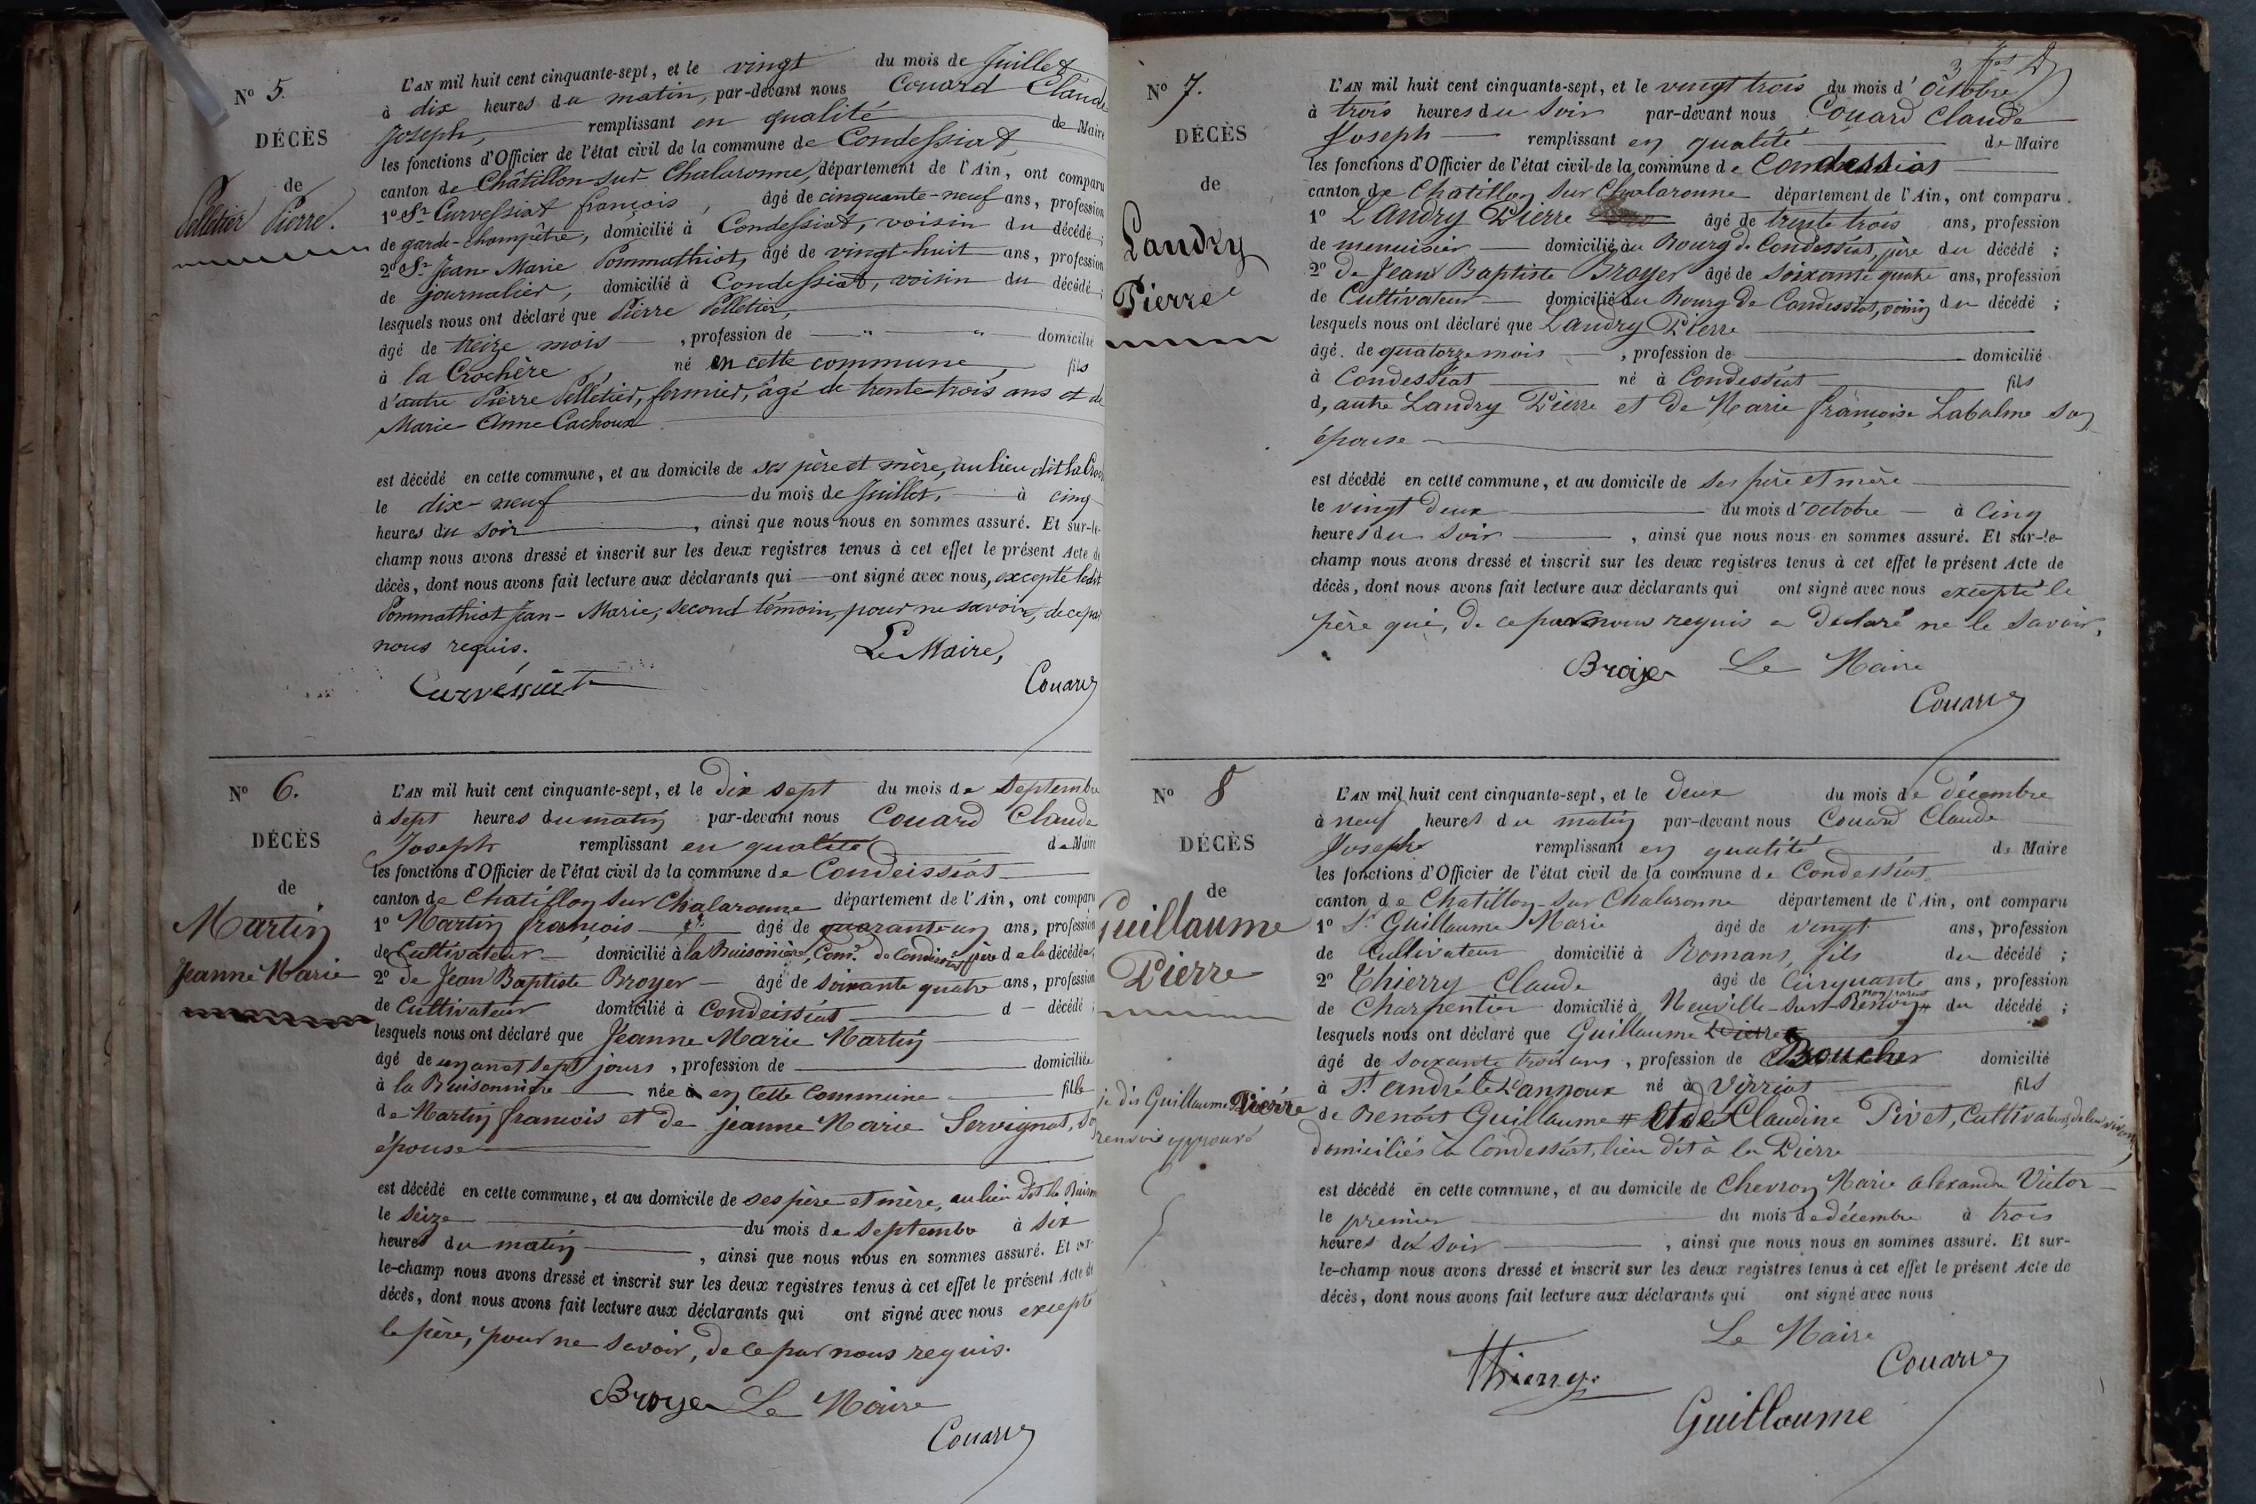 N° 5.
DÉCÈS
de
Pelletier Pierre.
L'AN mil huit cent cinquante-sept, et le vingt du mois de Juillet
à dix heures du matin, par-devant nous Couard Claude
Joseph, remplissant en qualité de Maire
les fonctions d'Officier de l'état civil de la commune de Condessiat
canton de Châtillon-sur-Chalaronne, département de l'Ain, ont comparu
1° Sr Curvessiat françois, âgé de cinquante-neuf ans, profession
de garde-champêtre, domicilié à Condessiat, voisin du décédé ;
2° Sr Jean-Marie Pommathiot, âgé de vingt-huit ans, profession
de journalier, domicilié à Condessiat, voisin du décédé ;
lesquels nous ont déclaré que Pierre Pelletier,
âgé de treize mois, profession de — " — " domicilié
à la Crochère, né en cette commune, fils
d'autre Pierre Pelletier, fermier, âgé de trente-trois ans et de
Marie-Anne Cachoux
est décédé en cette commune, et au domicile de ses père et mère, au lieu dit la
le dix-neuf du mois de Juillet, à cinq
heures du soir, ainsi que nous nous en sommes assuré. Et sur-le-
champ nous avons dressé et inscrit sur les deux registres tenus à cet effet le présent Acte de
décès, dont nous avons fait lecture aux déclarants qui — ont signé avec nous, excepté ledit
Pommathiot Jean-Marie, second témoin, pour ne savoir, de ce par
nous requis.
Le Maire,
Curvéssiat
Couard
N° 6.
DÉCÈS
de
Martin
Jeanne Marie
L'AN mil huit cent cinquante-sept, et le dix sept du mois de Septembre
à sept heures du matin par-devant nous Couard Claude
Joseph remplissant en qualité de Maire
les fonctions d'Officier de l'état civil de la commune de Condeissiat
canton de Chatillon sur Chalaronne département de l'Ain, ont comparu
1° Martin françois âgé de quarante un ans, profession
de Cultivateur domicilié à la Buisonière, Com.ne de Condeissiat père de la décédée,
2° de Jean Baptiste Broyer — âgé de soixante quatre ans, profession
de Cultivateur domicilié à Condeissiat d — décédé ;
lesquels nous ont déclaré que Jeanne Marie Martin
âgé de un an et sept jours, profession de domiciliée
à la Buisonnière née à en cette Commune fille
de Martin françois et de jeanne Marie Servignat, son
épouse
est décédé en cette commune, et au domicile de ses père et mère, au lieu dit la
le seize du mois de Septembre à six
heures du matin, ainsi que nous nous en sommes assuré. Et sur-
le-champ nous avons dressé et inscrit sur les deux registres tenus à cet effet le présent Acte de
décès, dont nous avons fait lecture aux déclarants qui ont signé avec nous excepté
le père, pour ne savoir, de ce par nous requis.
Broyer Le Maire
Couard
N° 7.
DÉCÈS
de
Landry
Pierre
L'AN mil huit cent cinquante-sept, et le vingt trois du mois d'Octobre
à trois heures du soir par-devant nous Couard Claude
Joseph remplissant en qualité de Maire
les fonctions d'Officier de l'état civil de la commune de Condessiat
canton de Chatillon sur Chalaronne département de l'Ain, ont comparu
1° Landry Pierre âgé de trente trois ans, profession
de menuisier domicilié au Bourg de Condessiat, père du décédé ;
2° de Jean Baptiste Broyer âgé de soixante quatre ans, profession
de Cultivateur domicilié au Bourg de Condessiat, voisin du décédé ;
lesquels nous ont déclaré que Landry Pierre
âgé de quatorze mois, profession de domicilié
à Condessiat né à Condessiat fils
d'autre Landry Pierre et de Marie françoise Labalme son
épouse
est décédé en cette commune, et au domicile de ses père et mère
le vingt deux du mois d'octobre à cinq
heures du soir, ainsi que nous nous en sommes assuré. Et sur-le-
champ nous avons dressé et inscrit sur les deux registres tenus à cet effet le présent Acte de
décès, dont nous avons fait lecture aux déclarants qui ont signé avec nous excepté le
père qui, de ce par nous requis a déclaré ne le savoir.
Broyer Le Maire
Couard
N° 8
DÉCÈS
de
Guillaume
Pierre
je dis Guillaume Pierre
renvoi approuvé
L'AN mil huit cent cinquante-sept, et le deux du mois de décembre
à neuf heures du matin par-devant nous Couard Claude
Joseph remplissant en qualité de Maire
les fonctions d'Officier de l'état civil de la commune de Condessiat
canton de Chatillon-sur Chalaronne département de l'Ain, ont comparu
1° Sr Guillaume Marie âgé de vingt ans, profession
de Cultivateur domicilié à Romans, fils du décédé ;
2° Thierry Claude âgé de Cinquante ans, profession
de Charpentier domicilié à Neuville-sur-Renon, non parent du décédé ;
lesquels nous ont déclaré que Guillaume Pierre
âgé de soixante trois ans, profession de Boucher domicilié
à St andré le Pannoux né à Virriat fils
de Benoit Guillaume # et de Claudine Pivet, Cultivateurs, de leur vivant
domiciliés à Condessiat, lieu dit à la Pierre
est décédé en cette commune, et au domicile de Chevron Marie alexandre Victor
le premier du mois de décembre à trois
heures du soir, ainsi que nous nous en sommes assuré. Et sur-
le-champ nous avons dressé et inscrit sur les deux registres tenus à cet effet le présent Acte de
décès, dont nous avons fait lecture aux déclarants qui ont signé avec nous
Le Maire
Thierry
Couard
Guillaume